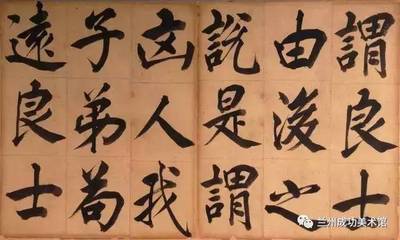 謂良士
由後之
說是謂
凶人我
子弟苟
遠良士
兰州成功美术馆